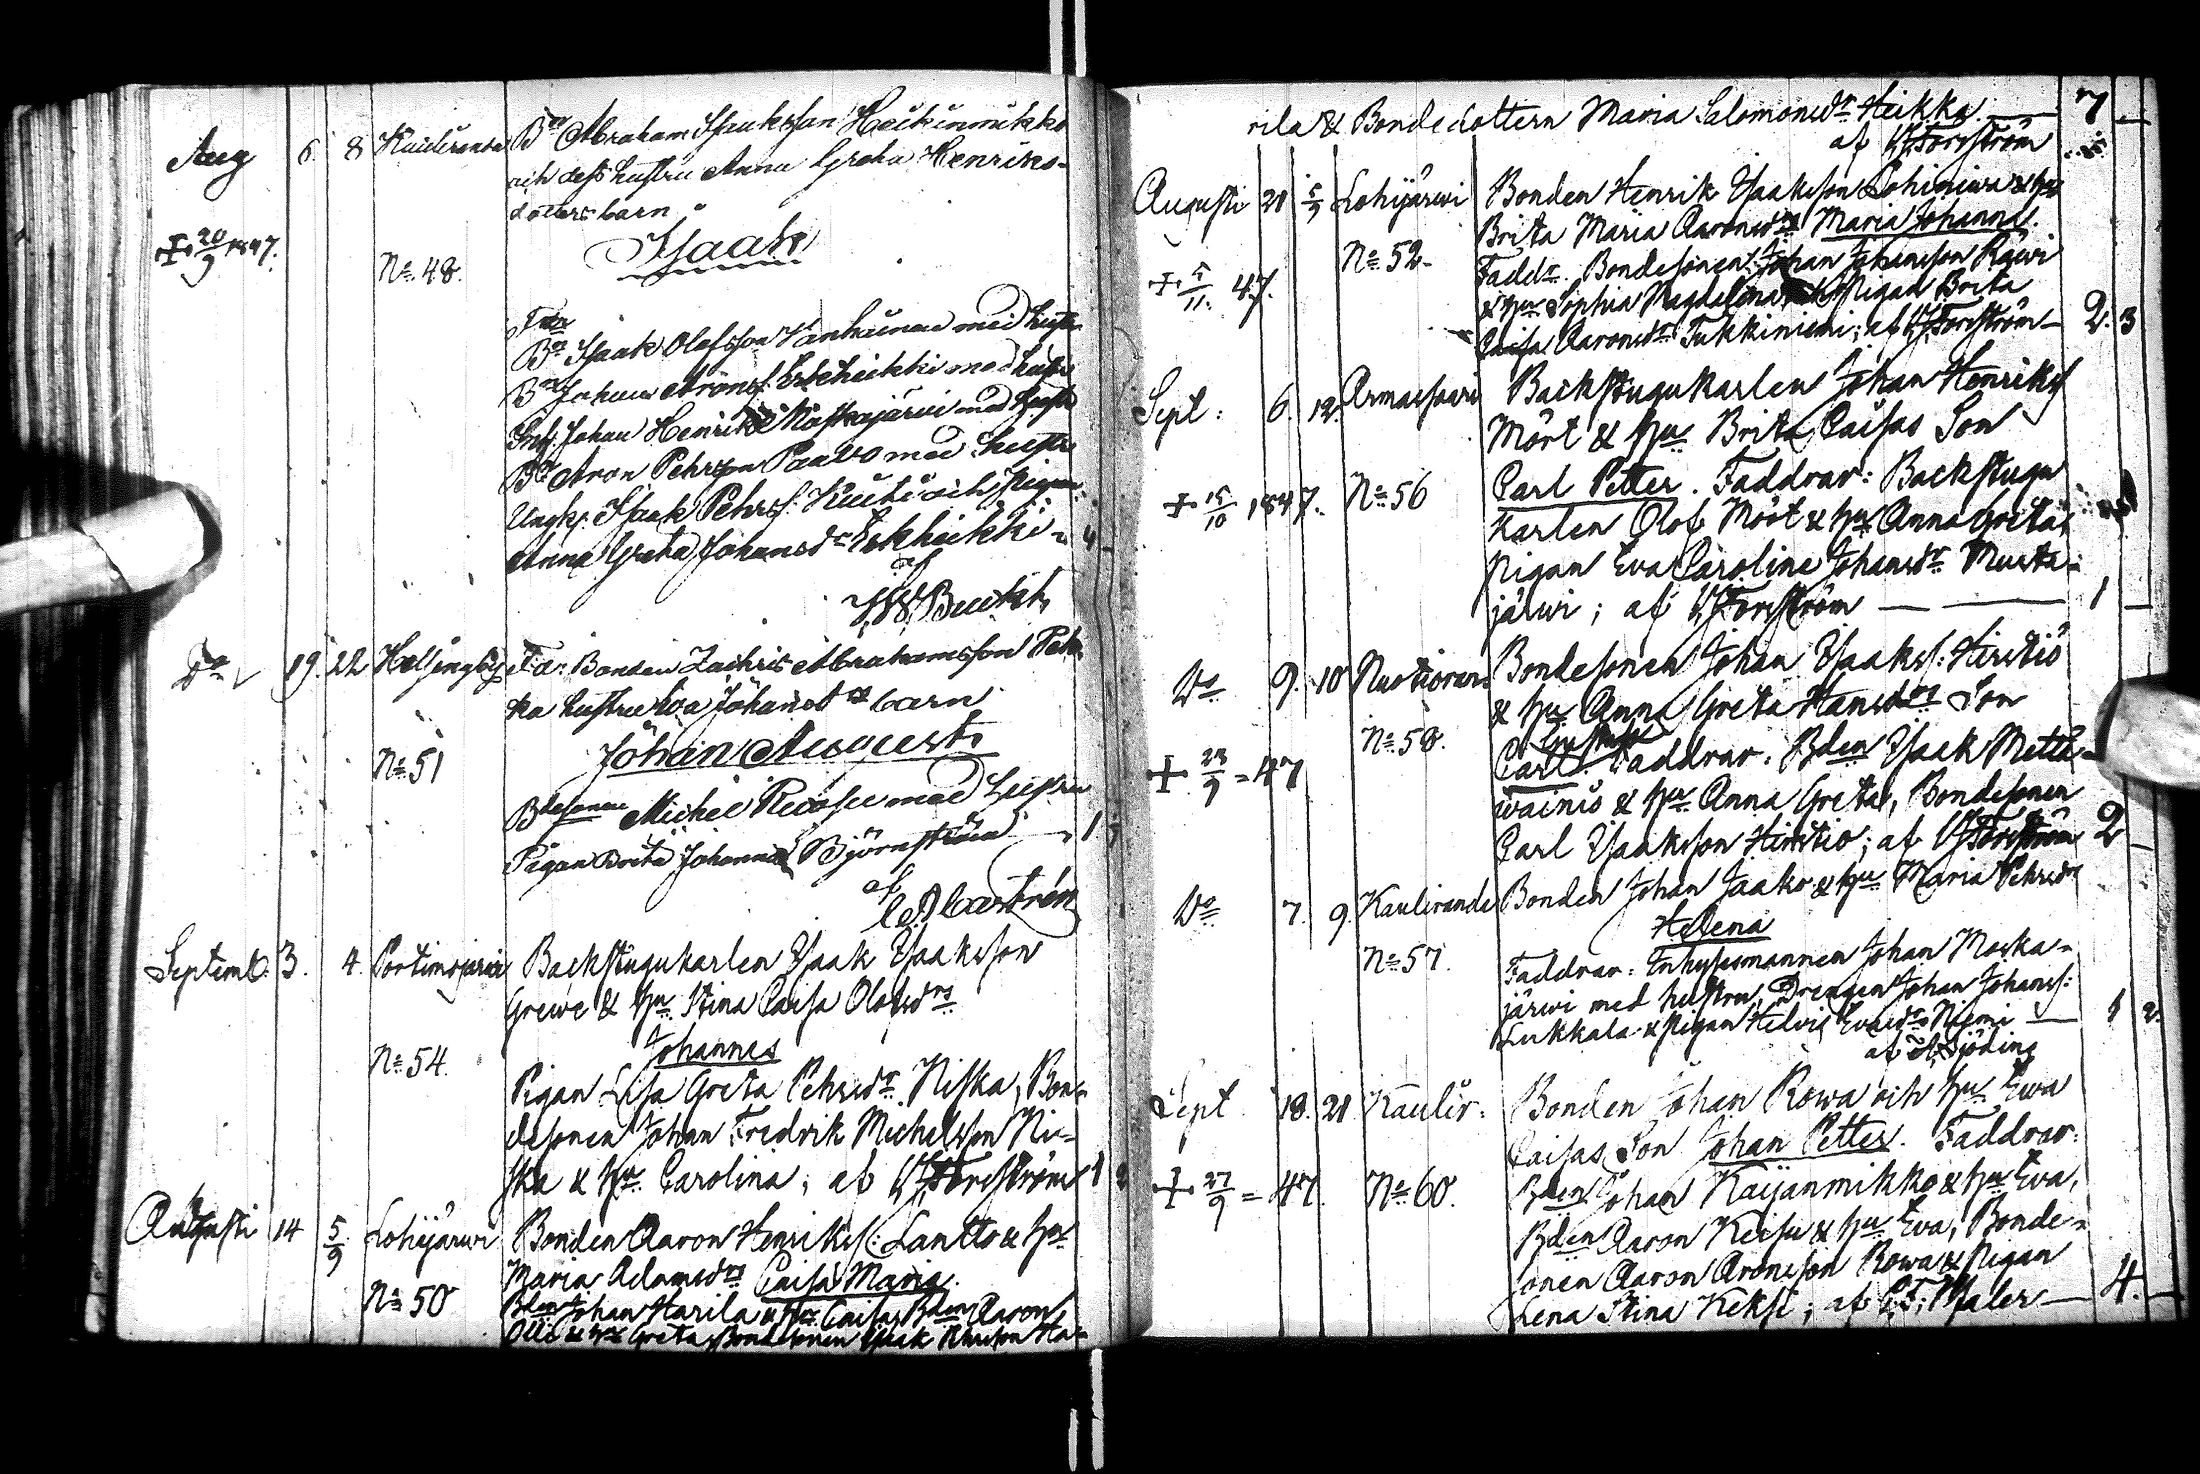 Aug 6. 8 Kuiviranta Bn Abraham Isaaksson Heikinmikko
och dess hustru Anna Greta Henriks-
dotters barn
+ 20/9 1847.
No 48.
Isaak
Fadr
Bn Isaak Olofsson Vanhainen med hustru
Bn Johan Aronss. Erkheikki med hustru
Inh. Johan Henriks Naskajärvi med hustru
Bn Aron Pehrson Paavo med hustru
Ungk. Isaak Pehrss. och Pigan
Anna Greta Johansdr Erkheikki 4 -
af
Do 19. 22 Helsingby Bonden Zachris Abrahamsson Pek-
ka hustru Eva Johansdrs barn
Johan August
No 51
Bdesonen Michel med hustru
Pigan Brita Johanna Björnström 1
af
Castrén
Septemb. 3. 4. Portimojärvi Backstugukarlen Isaak Isaaksson
Grewe & hu Stina Caisa Olofsdrs
Johannes
No 54.
Pigan Lisa Greta Pehrsdr Niska, Bon-
desonen Johan Fredrik Michelsson Ni-
ska & hu Carolina; af Forsström 1 2
Augusti 14 5/9 Lohijärwi Bonden Aaron Henrikss: Lantto & hu
Maria Adamsdrs Caisa Maria.
No 50
Bden Johan Harila & hu Caisa, Bden Aaron
Olli & hu Greta, Bondesonen Isaak Ha-
rila & Bondedottern Maria Salomonsdr Heikka. 7 -
af Forsström
Augusti 21 5/9 Lohijärwi Bonden Henrik Isaaksson & hu
Brita Maria Aaronsdrs Maria Johanna.
No 52.
Faddr. Bondesonen Johan Johansson Rowi
+ 5/11. 47.
& hu Sophia Magdalena Pigan Brita
Caisa Aaronsdr Tukkiniemi; af Forsström 2. 3
Sept: 6. 12. Armassaari Backstugukarlen Johan Henrikss
Mört & hu Brita Caisas Son
+ 15/10 1847. No 56
Carl Petter. Faddrar: Backstugu
karlen Olof Mört & hu Anna Greta,
Pigan Eva Carolina Johansdr Musta-
järwi; af Forsström 1 -
Do 9. 10 Nuotioranta Bondesonen Johan Isaakss: Hirstiö
& hu Anna Greta Hansdrs Son
No 58.
Carl Gustaf. Faddrar. Bden Isaak Metta-
+ 23/9 = 47
wainio & hu Anna Greta, Bondesonen
Carl Isaaksson Hirstio; af Forsström 2 -
Do 7. 9. Kauliranda Bonden Johan Jaako & hu Maria Pehrsdr
Helena
No 57.
Faddrar: Inhysesmannen Johan Naska-
järwi med hustru, Drengen Johan Johanss:
Lukkala & Pigan Helvig Evasdr Niemi 1 2.
af Sjöding
Sept 18. 21 Kaulir: Bonden Johan Rowa och hu Ewa
Caisas Son Johan Petter. Faddrar:
+ 27/9 = 47. No 60.
Bden Johan Kaijanmikko & hu Eva,
Bden Aaron Keisu & hu Eva, Bonde-
sonen Aaron Aronsson Rowa & Pigan
Lena Stina Keksi; af Thaler 4. -